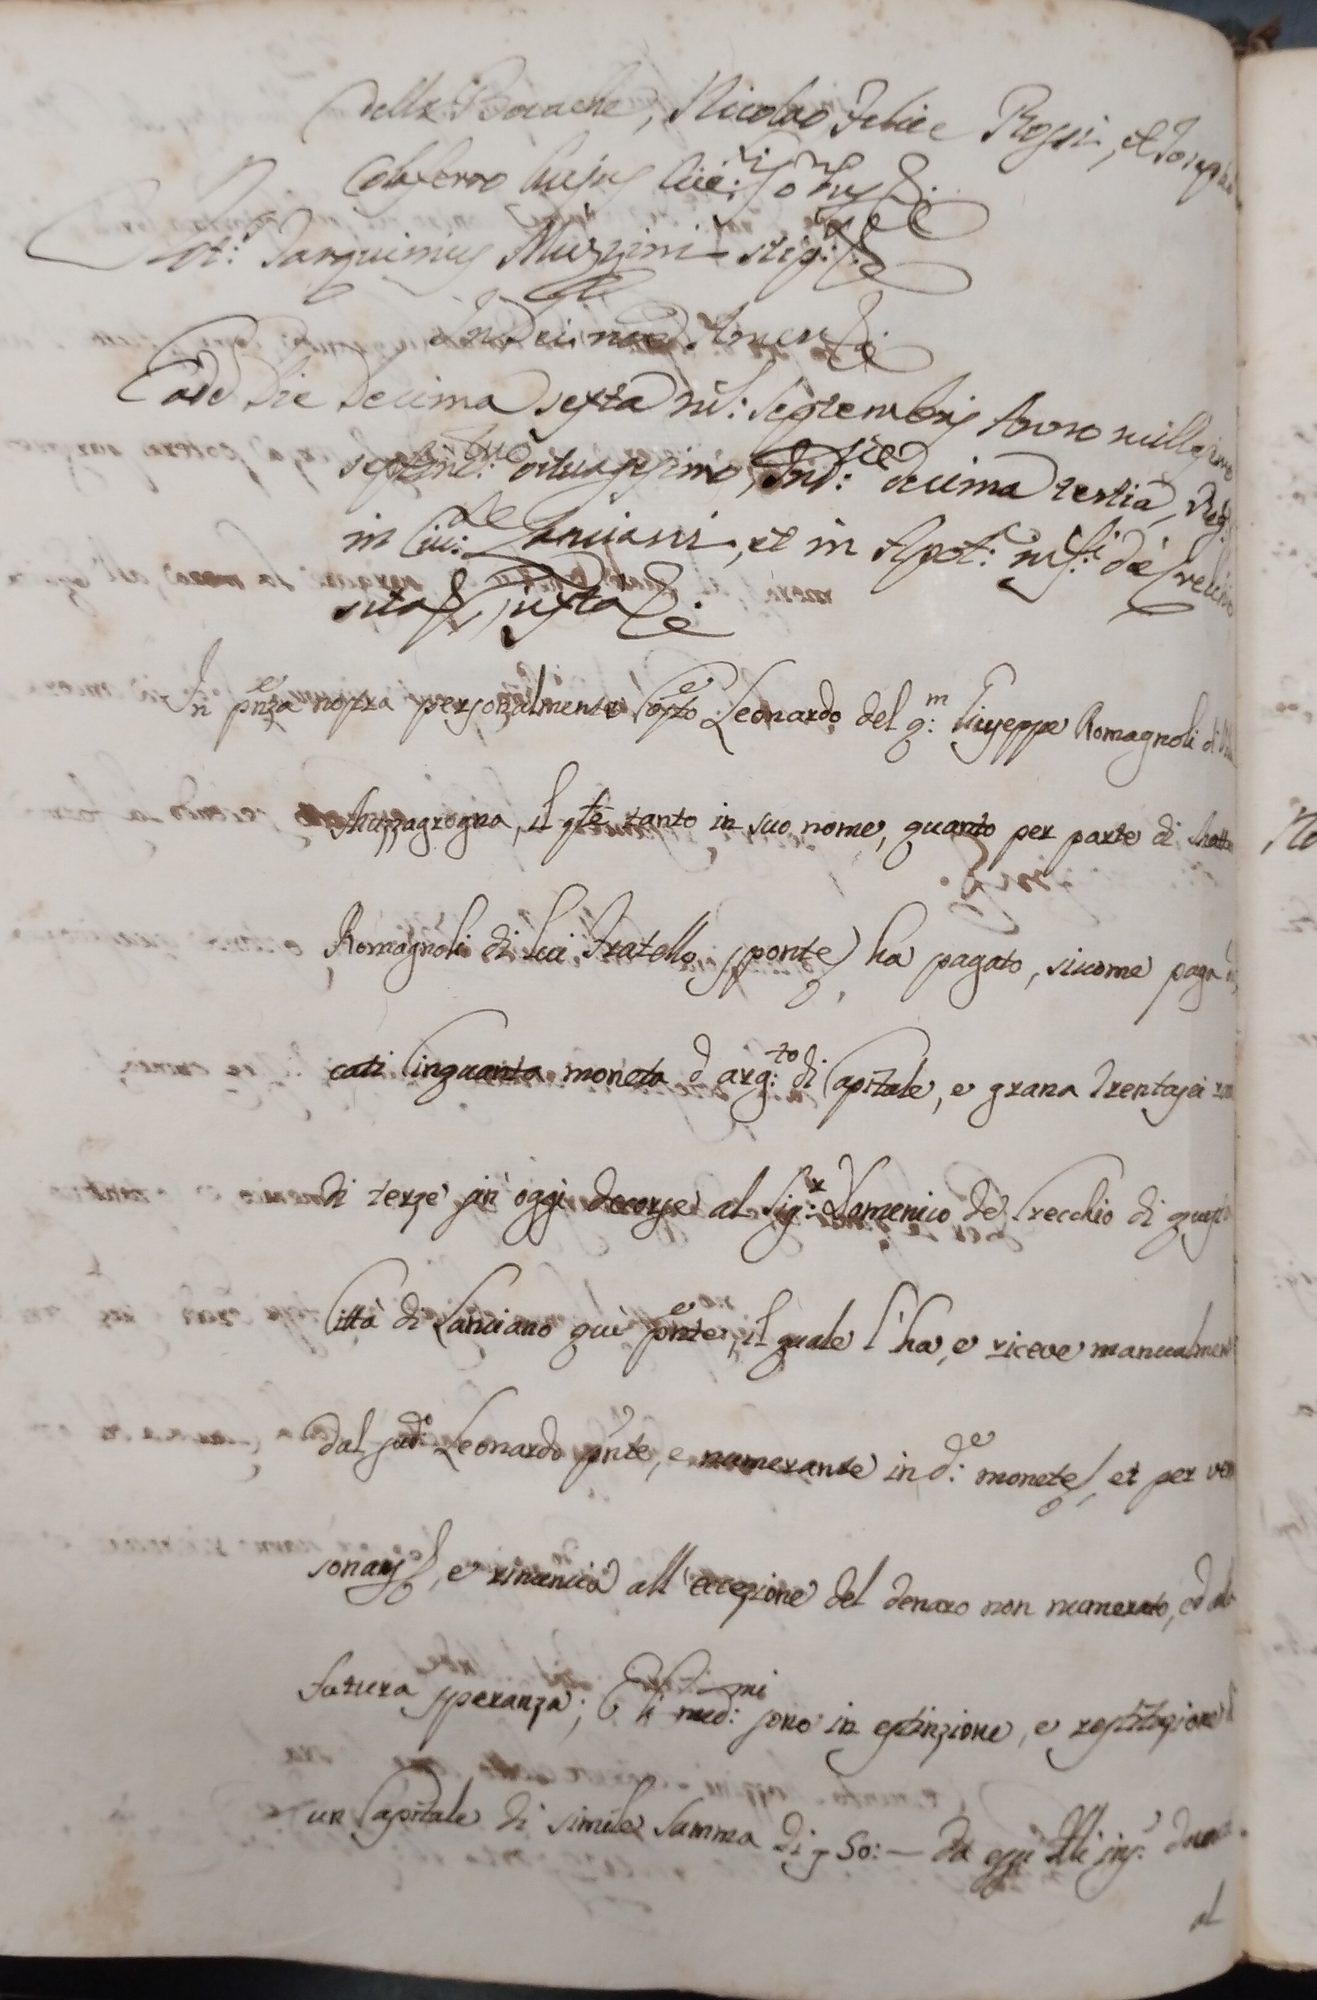 delle Bocache, Nicolao Felice Rossi, et Joseph
Colaferro hujus Civ:
Not: Tarquinius Muzzini stip:
In Dei noe Amen
Eodē Die Decima sexta ms: Septembris Anno millesimo
septing:mo octuagesimo, Ind:ne decima tertia, Reg:
in Civ:te Lanciani, et in Apot: de Crecchio
sita juxta
In pnza nostra personalmente Costo Leonardo del q:m Giuseppe Romagnoli di
Mozzagrogna, il qle tanto in suo nome, quanto per parte di
Romagnoli di lui Fratello sponte ha pagato, sicome paga du
cati Cinquanta moneta d'arg:to di Capitale, e grana trentasei
di terze sin'oggi decorse al Sig:r Domenico de Crecchio di questa
Città di Lanciano quì pnte, il quale l'ha, e riceve manualmen
dal sud:o Leonardo pnte, e numerante in d:e monete, et per
e rinuncia all'eccezione del denaro non numerato, ed alla
futura speranza; E li med:mi sono in estinzione, e restituzione di
un Capitale di simile Summa di 50:— da essi
al